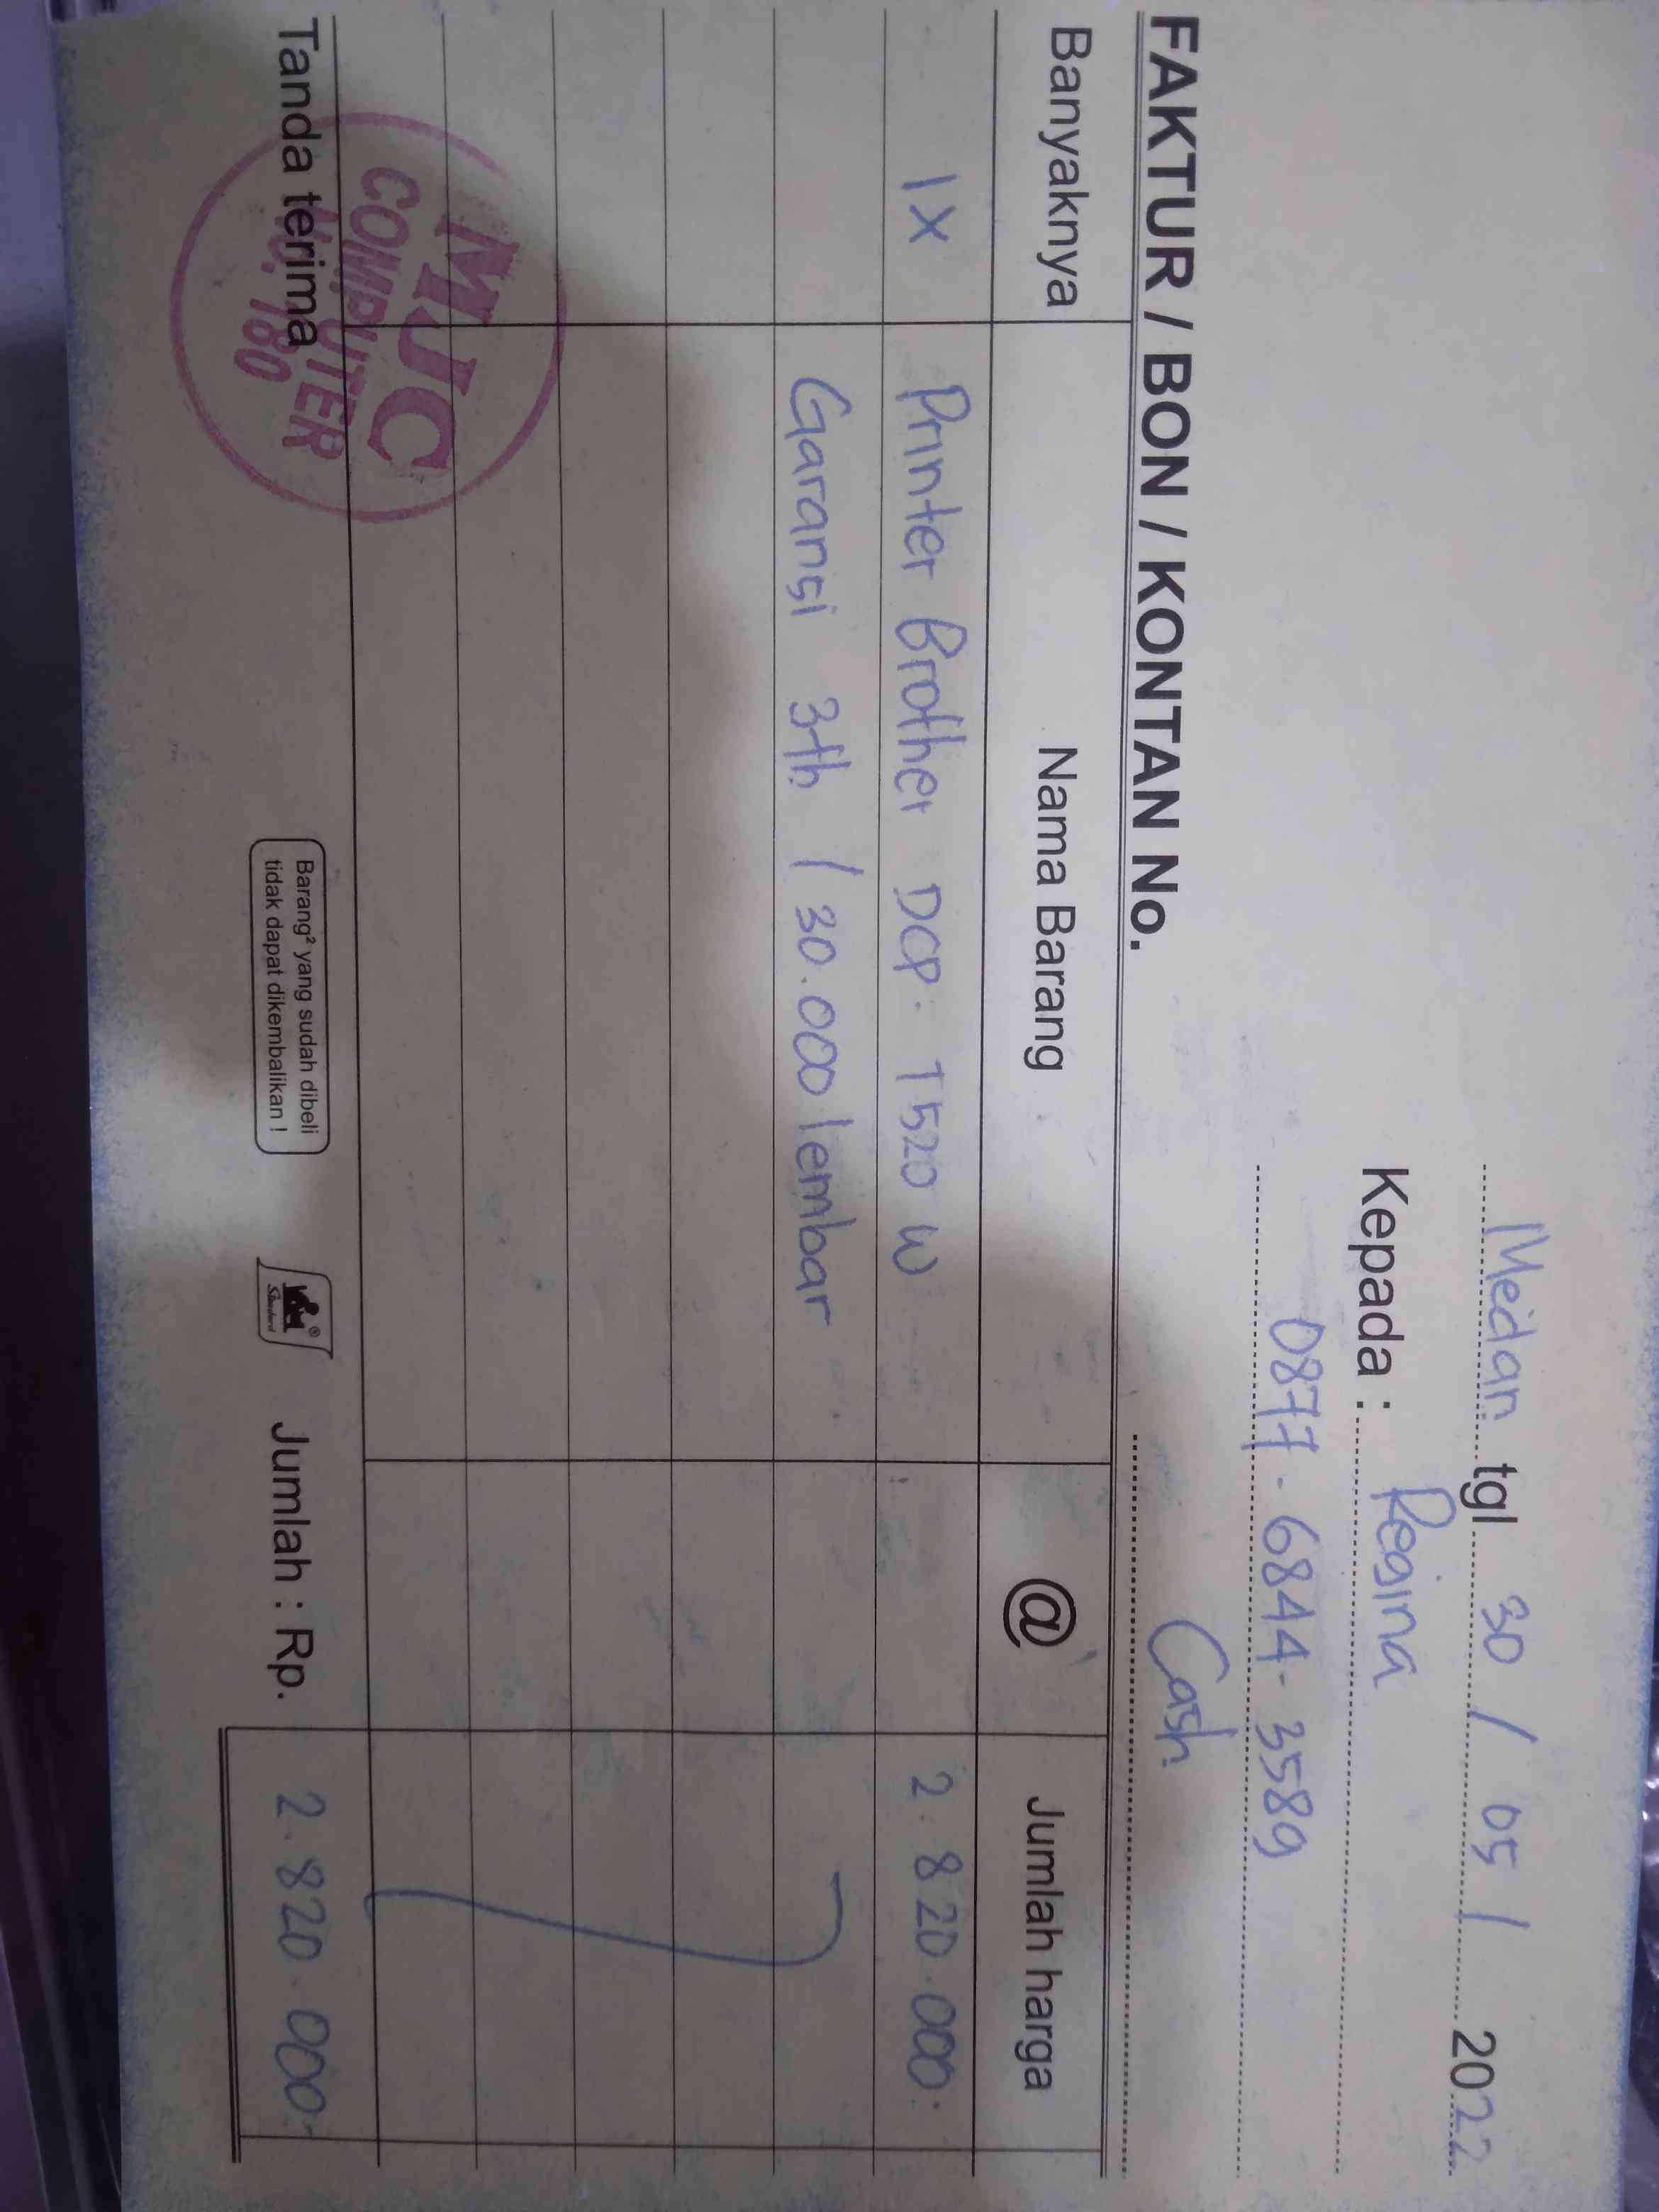 Medan tgl 30 / 05 / 2022
Kepada : Regina
0877 - 6844 - 3589
FAKTUR / BON / KONTAN No. Cash
Banyaknya Nama Barang @ Jumlah harga
1X Printer Brother DCP. T520 W 2.820.000
Garansi 3th / 30.000 lembar
Tanda terima
MJC
COMPUTER
180
Barang² yang sudah dibeli
tidak dapat dikembalikan !
Standard ®
Jumlah : Rp. 2.820.000